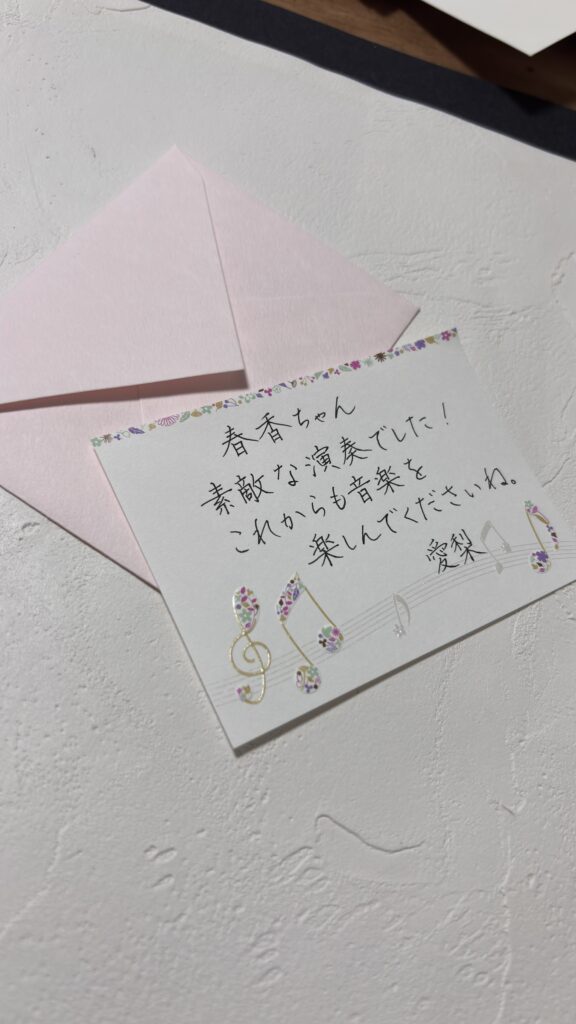 春香ちゃん
素敵な演奏でした!
これからも音楽を
楽しんでくださいね。
愛梨